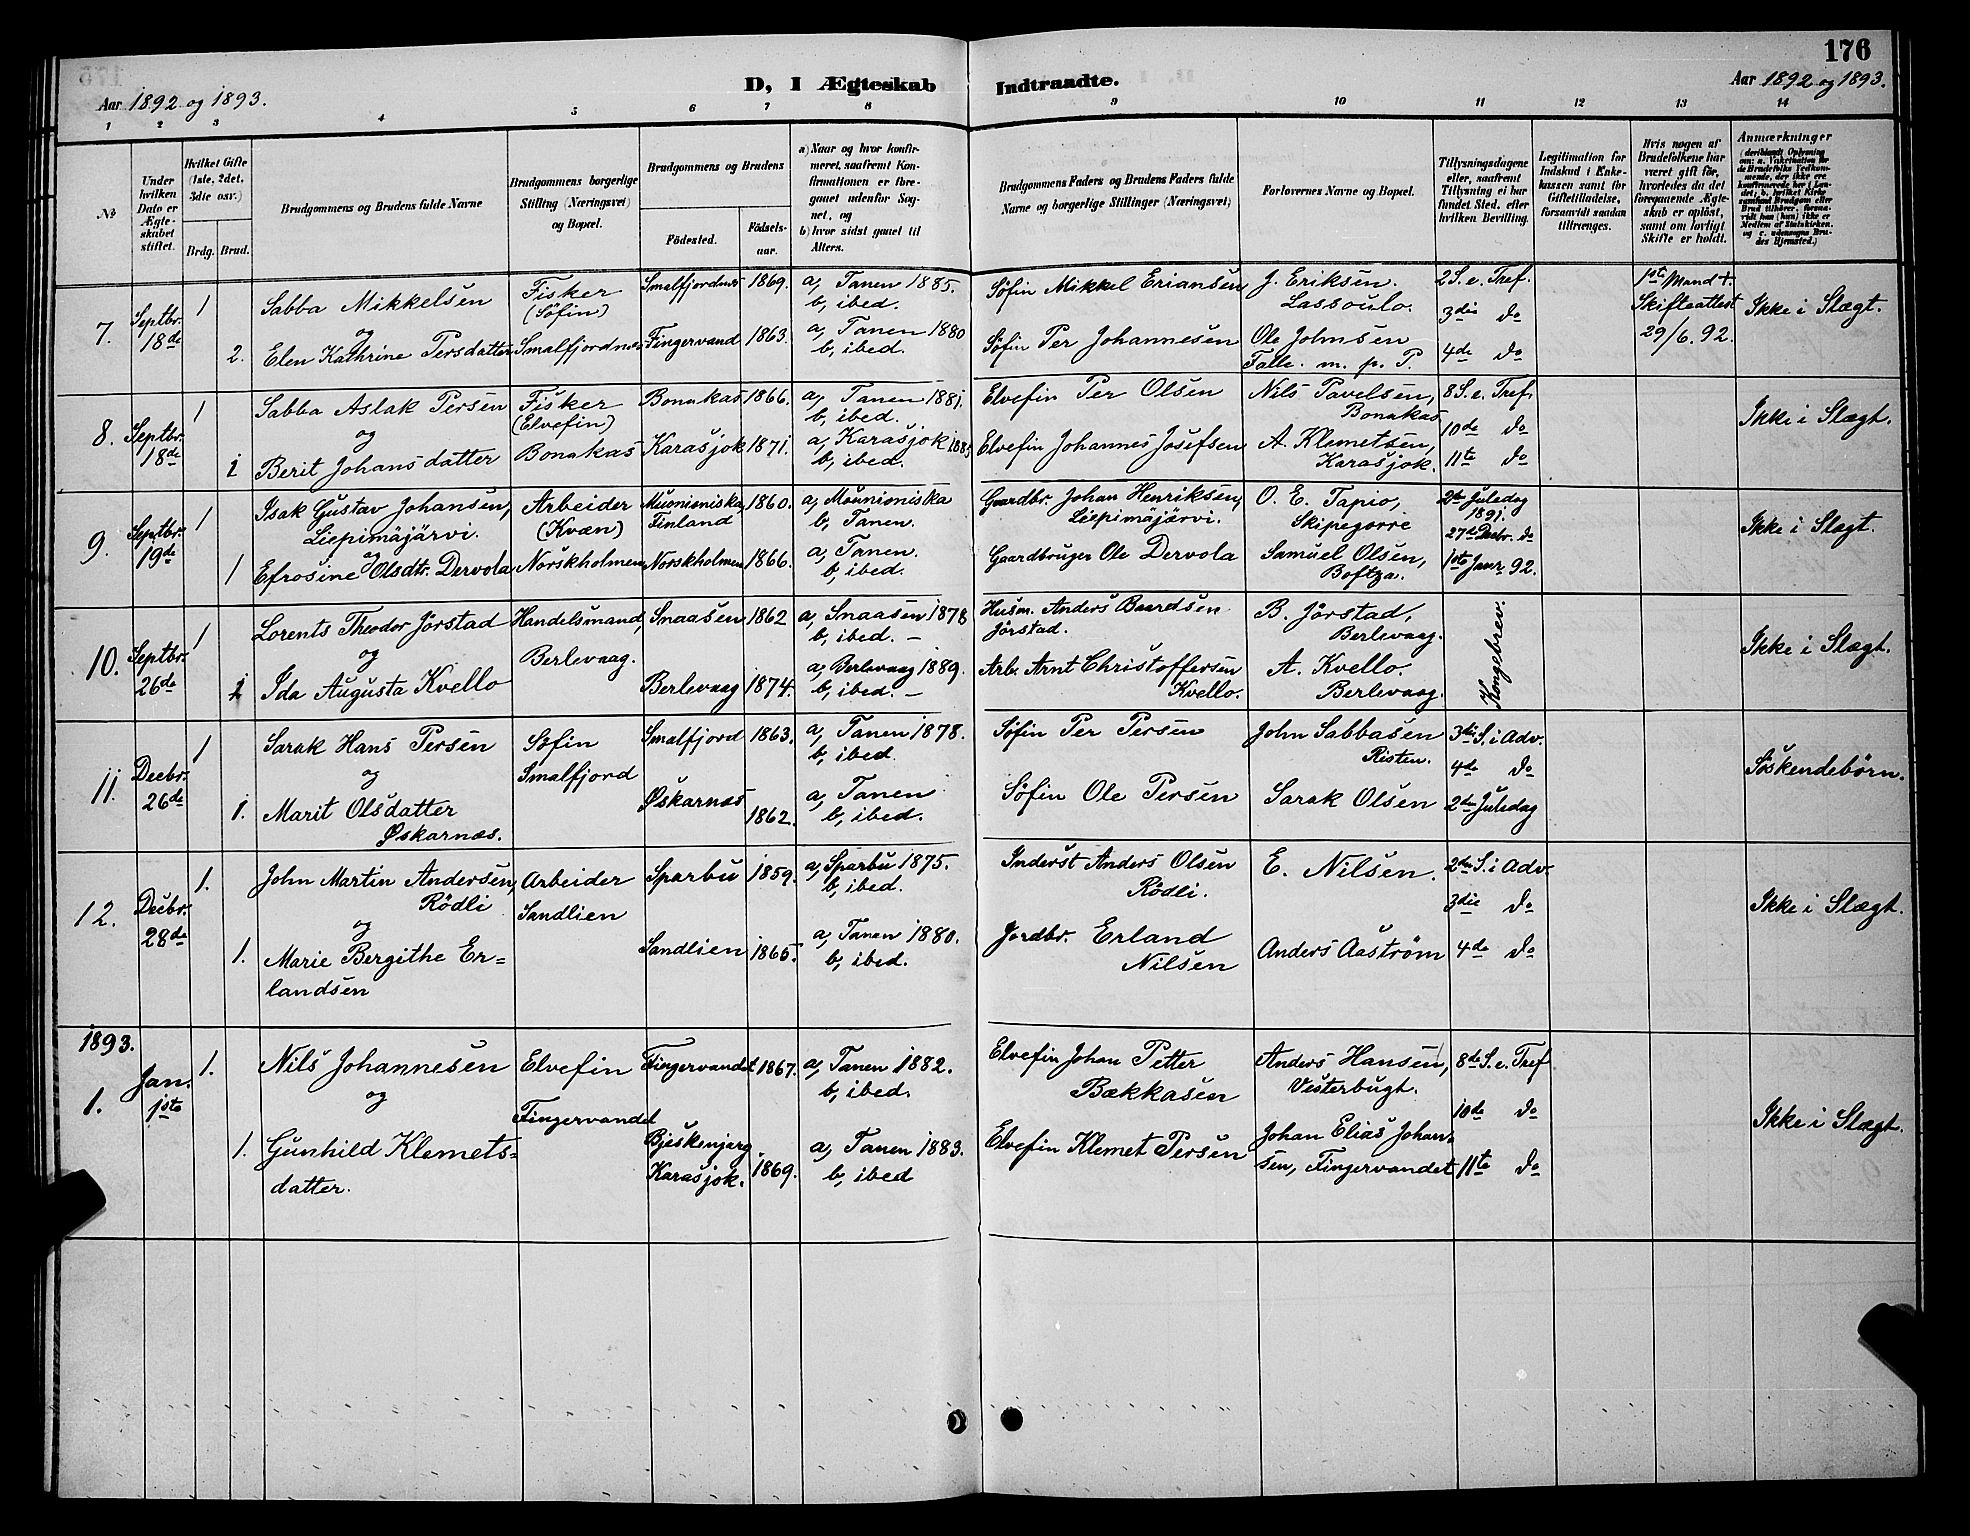 176
D, I Ægteskab Indtraadte.
Aar 1892 og 1893.
Aar 1892 og 1893.
1 2 3 4 5 6 7 8 9 10 11 12 13 14
№
Under hvilken Dato er Ægteskabet stiftet.
Hvilket Gifte (1ste, 2det, 3die osv.)
Brdg. Brud.
Brudgommens og Brudens fulde Navne
Brudgommens borgerlige Stilling (Næringsvei) og Bopæl.
Brudgommens og Brudens
Fødested. Fødselsaar.
a) Naar og hvor konfirmeret, saafremt Konfirmationen er foregaaet udenfor Sognet, og
b) hvor sidst gaaet til Alters.
Brudgommens Faders og Brudens Faders fulde Navne og borgerlige Stillinger (Næringsvei)
Forlovernes Navne og Bopæl.
Tillysningsdagene eller, saafremt Tillysning ei har fundet Sted, efter hvilken Bevilling.
Legitimation for Indskud i Enkekassen samt for Giftetilladelse, forsaavidt saadan tiltrænges.
Hvis nogen af Brudefolkene har været gift før, hvorledes da det foregaaende Ægteskab er opløst, samt om lovligt Skifte er holdt.
Anmærkninger
7. Septbr. 18de 1 Sabba Mikkelsen Fisker (Søfin) Smalfjordnæs 1869. a, Tanen 1885. b, ibed. Søfin Mikkel Eriansen J. Eriksen. Lassoulo. 2 S. e. Tref. 1ste Mand +. Skifteattest 29/6. 92. Ikke i Slægt.
og 3die do
2. Elen Kathrine Persdatter Smalfjordnæs Fingervand 1863. a, Tanen 1880 b, ibed. Søfin Per Johannesen Ole Johnsen Falle. m. p. P. 4de do
8. Septbr. 18de 1 Sabba Aslak Persen Fisker (Elvefin) Bonakas 1866. a, Tanen 1881. b, ibed. Elvefin Per Olsen Nils Pavelsen, Bonakas 8 S. e. Tref. Ikke i Slægt.
og 10de do
1 Berit Johansdatter Bonakas Karasjok 1871. a, Karasjok 1885 b, ibed. Elvefin Johannes Josefsen A. Klemetsen, Karasjok. 11te do
9. Septbr. 19de 1 Isak Gustav Johansen, Liepimäjärvi. Arbeider (Kvæn) Muonioniska, Finland 1860. a, Mounioniska b, Tanen. Gaardbr. Johan Henriksen, Liepimäjärvi. O. E. Tapio, Skipegorre 2den Juledag 1891. 27de Decbr. do Ikke i Slægt.
og
1 Efrosine Olsdtr. Dervola Norskholmen Norskholmen 1866. a, Tanen. b, ibed. Gaardbruger Ole Dervola Samuel Olsen, Boftza. 1ste Janr 92.
10. Septbr. 26de 1 Lorents Theodor Jörstad Handelsmand, Berlevaag. Snaasen 1862 a, Snaasen 1878 b, ibed. – Husm. Anders Baardsen Jörstad. B. Jörstad, Berlevaag. Kongebrev. Ikke i Slægt.
og
1 Ida Augusta Kvello Berlevaag 1874. a, Berlevaag 1889. b, ibed. – Arb. Arnt Christoffersen Kvello. A. Kvello. Berlevaag.
11. Decbr. 26de 1 Sarak Hans Persen Søfin Smalfjord Smalfjord 1863. a, Tanen 1878. b, ibed. Søfin Per Persen John Sabbasen Risten. 3die S. i Adv. Söskendebörn.
og 4de do
1. Marit Olsdatter Øskarnæs. Øskarnæs 1862. a, Tanen b, ibed. Søfin Ole Persen Sarak Olsen 2den Juledag
12. Decbr. 28de 1. John Martin Andersen, Rödli Arbeider Sandlien Sparbu 1859. a, Sparbu 1875. b, ibed. Inderst Anders Olsen Rödli. E. Nilsen. 2den S. i Adv. Ikke i Slægt.
og 3die do
1. Marie Bergithe Er= landsen Sandlien 1865. a, Tanen 1880. b, ibed. Jordbr. Erland Nilsen Anders Aaström 4de do
1893.
1. Jan. 1ste 1. Nils Johannesen Elvefin Fingervandet Fingervandet 1867. a, Tanen 1882. b, ibed. Elvefin Johan Petter Bækkasen Anders Hansen, Vesterbugt. 8de S. e. Tref Ikke i Slægt.
og 10de do
1. Gunhild Klemets= datter. Bjeskenjerg Karasjok. 1869. a, Tanen 1883. b, ibed Elvefin Klemet Persen Johan Elias Johan= sen, Fingervandet 11te do